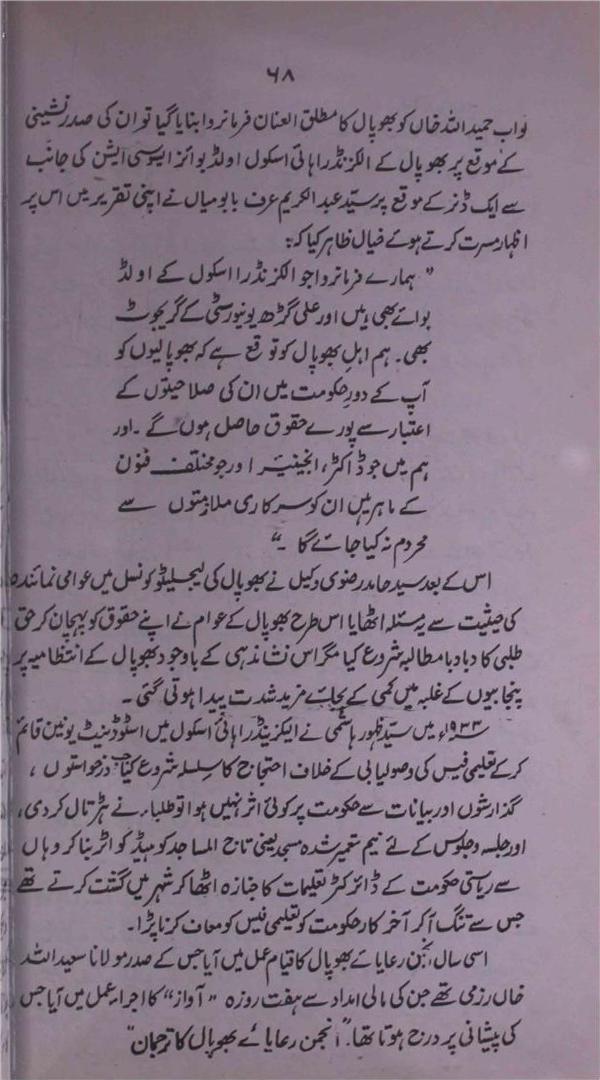 ۶۸
نواب حمید اللہ خاں کو بھوپال کا مطلق العنان فرمانروا بنایا گیا تو ان کی صدر نشینی
کے موقع پر بھوپال کے الکزنڈرا ہائی اسکول اولڈ بوائز ایسوسی ایشن کی جانب
سے ایک ڈنر کے موقع پر سید عبد الکریم عرف بابو میاں نے اپنی تقریر میں اس پر
اظہار مسرت کرتے ہوئے خیال ظاہر کیا کہ:
" ہمارے فرمانروا جو الکزنڈرا اسکول کے اولڈ
بوائے بھی ہیں اور علی گڑھ یونیورسٹی کے گریجوٹ
بھی۔ ہم اہل بھوپال کو توقع ہے کہ بھوپالیوں کو
آپ کے دورِ حکومت میں ان کی صلاحیتوں کے
اعتبار سے پورے حقوق حاصل ہوں گے ۔ اور
ہم میں جو ڈاکٹر، انجینیر اور جو مختلف فنون
کے ماہر ہیں ان کو سرکاری ملازمتوں سے
محروم نہ کیا جائے گا ۔"
اس کے بعد سید حامد رضوی وکیل نے بھوپال کی لیجسلیٹو کونسل میں عوامی نمائندہ
کی حیثیت سے یہ مسئلہ اٹھایا اس طرح بھوپال کے عوام نے اپنے حقوق کو پہچان کر حق
طلبی کا دبا دبا مطالبہ شروع کیا مگر اس نشاندہی کے باوجود بھوپال کے انتظامیہ پر
پنجابیوں کے غلبہ میں کمی کے بجائے مزید شدت پیدا ہوتی گئی ۔
۱۹۳۳ء میں سید ظہور ہاشمی نے ایگزینڈرا ہائی اسکول میں اسٹوڈینٹ یونین قائم
کر کے تعلیمی فیس کی وصولیابی کے خلاف احتجاج کا سلسلہ شروع کیا جب درخواستوں ،
گذارشوں اور بیانات سے حکومت پر کوئی اثر نہیں ہوا تو طلباء نے ہڑتال کر دی،
اور جلسہ و جلوس کے لئے نیم تعمیر شدہ مسجد یعنی تاج المساجد کو ہیڈ کواٹر بنا کر وہاں
سے ریاستی حکومت کے ڈائرکٹر تعلیمات کا جنازہ اٹھا کر شہر میں گشت کرتے تھے
جس سے تنگ آ کر آخر کار حکومت کو تعلیمی فیس کو معاف کرنا پڑا۔
اسی سال انجمن رعایائے بھوپال کا قیام عمل میں آیا جس کے صدر مولانا سعید اللہ
خاں رزمی تھے جن کی مالی امداد سے ہفت روزہ "آواز" کا اجراء عمل میں آیا جس
کی پیشانی پر درج ہوتا تھا۔ "انجمن رعایائے بھوپال کا ترجمان"